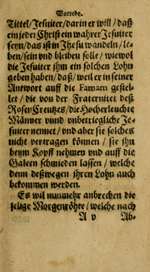 Vorrede.
Tittel/Jesuiter/darin er will/daß
ein jeder Christ ein wahrer Jesuiter
seyn/das ist in Jhesu wandeln/le-
ben/sein vnd bleiben solle/wiewol
die Jesuiter jhm ein solchen Lohn
geben haben/daß/weil er in seiner
Antwort auff die Famam gestel-
let/die von der Fraternitet deß
Rosen Creutzes/die Hocherleuchte
Männer vnnd vnbetriegliche Je-
suiter nennet/vnd aber sie solches
nicht vertragen können/sie jhn
beym Kopff nehmen vnd auff die
Galeen schmieden lassen/welche
denn deßwegen jhren Lohn auch
bekommen werden.
Es wil nunmehr anbrechen die
selige Morgenröhte/welche nach
A v Ab-